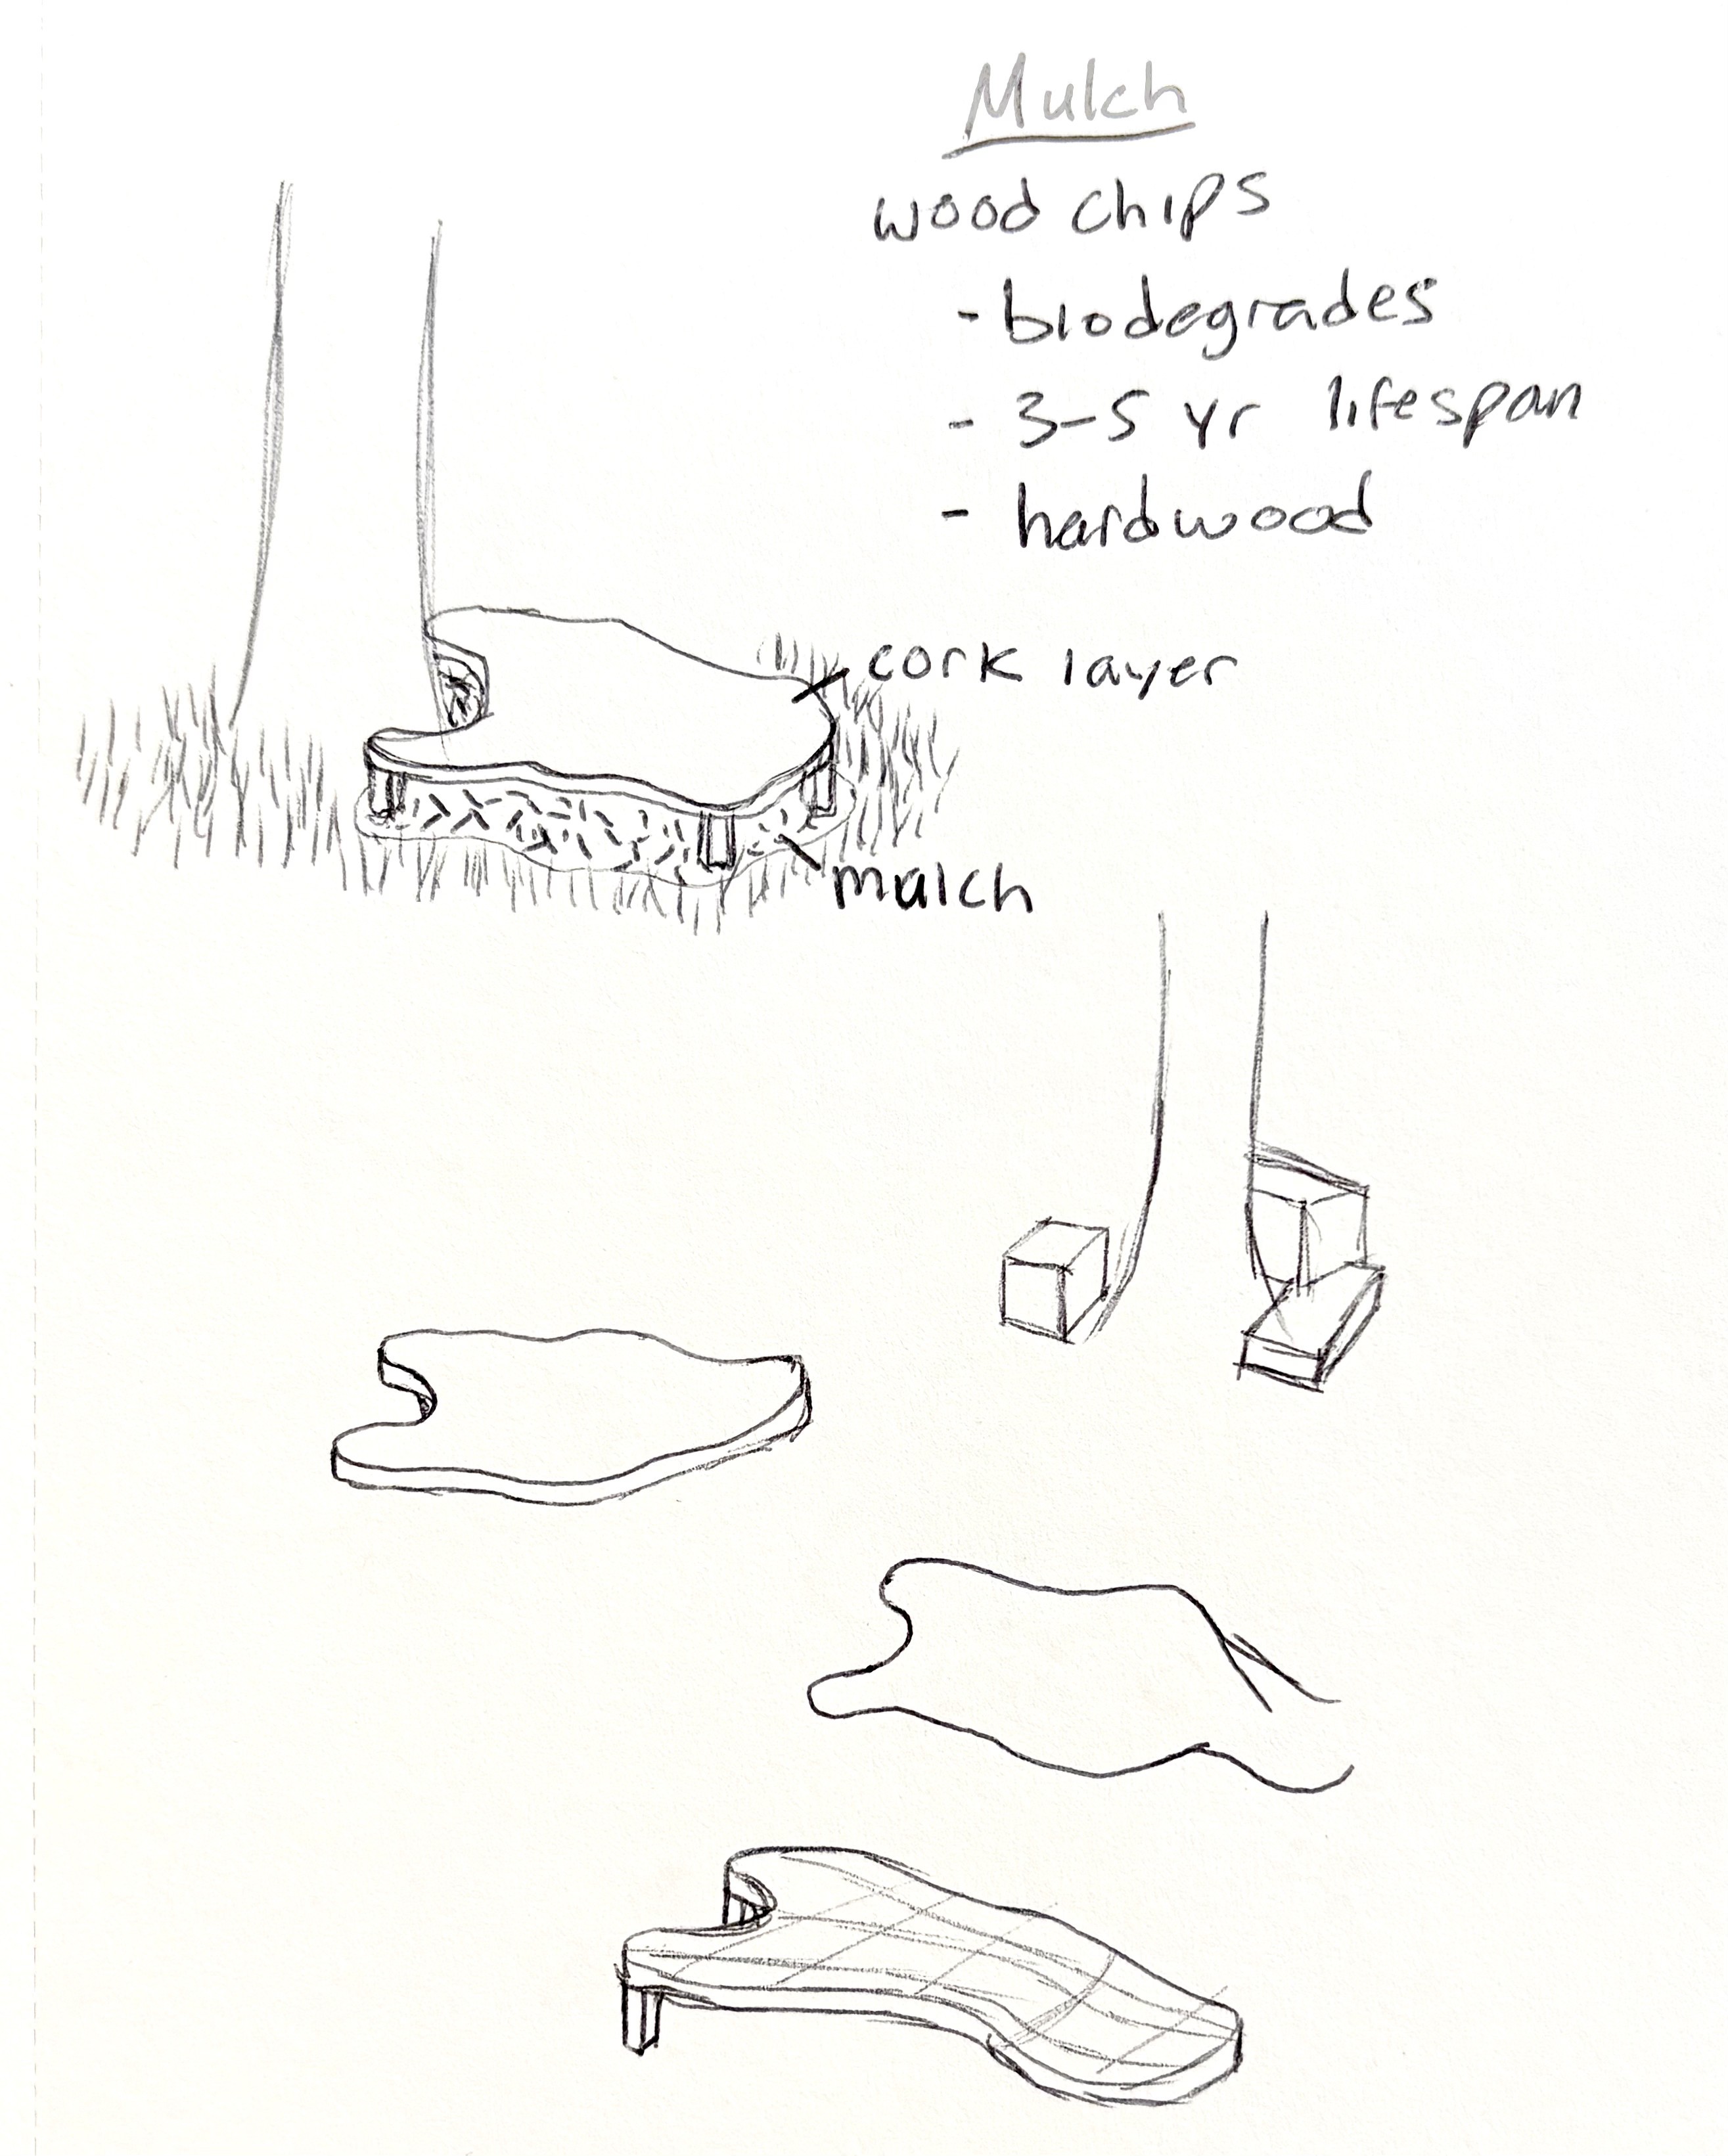 Mulch
wood chips
- biodegrades
- 3-5 yr lifespan
- hardwood
cork layer
mulch